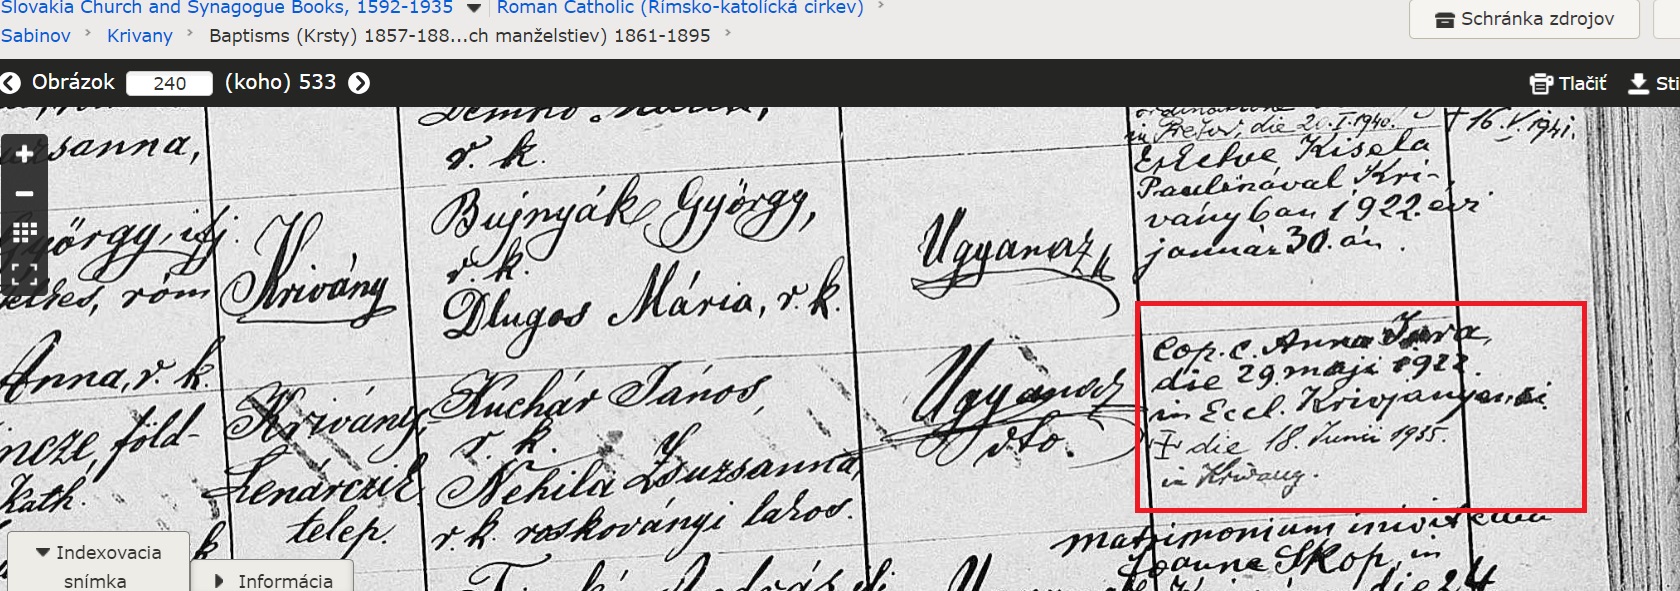 Slovakia Church and Synagogue Books, 1592-1935 Roman Catholic (Rímsko-katolícka cirkev)
Sabinov Krivany Baptisms (Krsty) 1857-188...ch manželstiev) 1861-1895
Schránka zdrojov
Obrázok 240 (koho) 533
Tlačiť
Sti
r. k.
in Prešov, die 20.I.1940.
† 16.V.1941.
zsanna,
Eskelve Kisela
Paulinával Kri-
ványban 1922. évi
január 30. án.
György, ifj.
róm
Krivány
Bujnyák György,
r. k.
Dlugos Mária, r. k.
Ugyanaz
Anna, r. k.
föld-
kath.
Krivány,
Lenárczik
telep.
Kuchár János,
r. k.
Nehila Zsuzsanna,
r. k. roskoványi lakos.
Ugyanaz
Cop. c. Anna
die 29. maji 1922.
in Eccl. Krivjanyensi
† die 18. Junii 1955.
in Krivany.
matrimonium
Joanne Skop, in
die 24
k
Indexovacia
snímka
Informácia